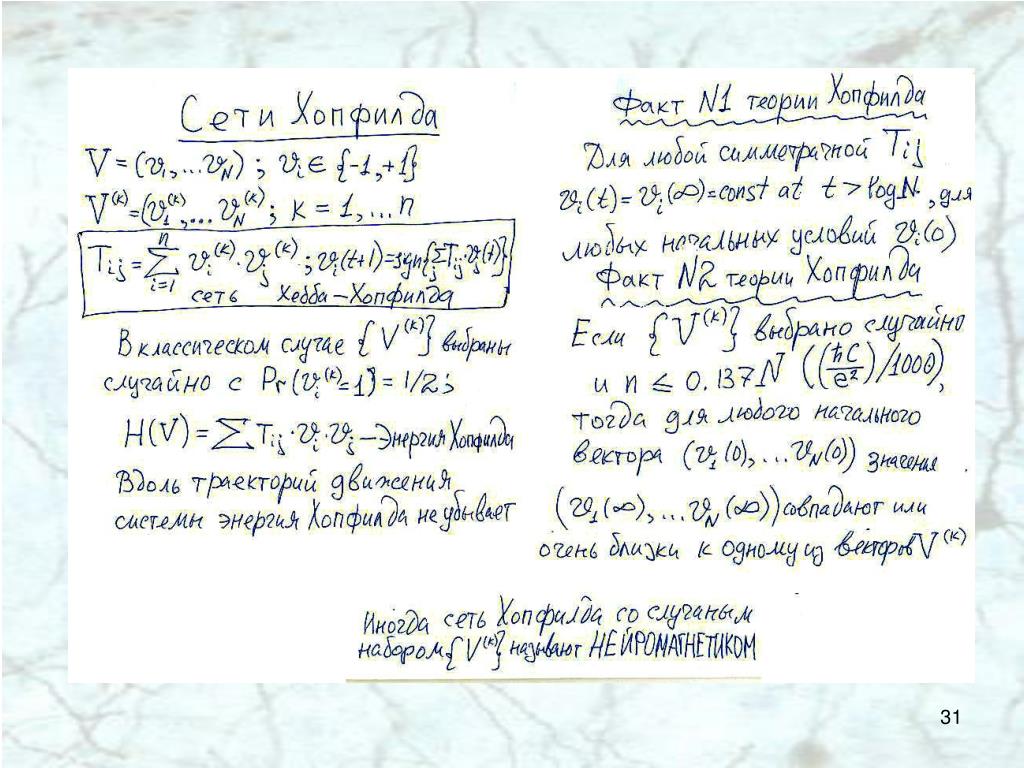 Сети Хопфилда
V = (v₁,...v_N) ; vᵢ ∈ {-1,+1}
V⁽ᵏ⁾=(v₁⁽ᵏ⁾,...v_N⁽ᵏ⁾; k = 1,...n
Tᵢⱼ = ∑ᵢ₌₁ⁿ vᵢ⁽ᵏ⁾·vⱼ⁽ᵏ⁾ ; vᵢ(t+1)=sgn{∑ⱼTᵢⱼ·vⱼ(t)}
сеть Хебба–Хопфилда
В классическом случае {V⁽ᵏ⁾} выбраны
случайно с Pr(vᵢ⁽ᵏ⁾=1) = 1/2;
H(V) = ∑Tᵢⱼ·vᵢ·vⱼ – Энергия Хопфилда
Вдоль траекторий движения
системы энергия Хопфилда не убывает
Факт N1 теории Хопфилда
Для любой симметричной Tᵢⱼ
vᵢ(t) = vᵢ(∞)=const at t > log N, для
любых начальных условий vᵢ(0)
Факт N2 теории Хопфилда
Если {V⁽ᵏ⁾} выбрано случайно
и n ≤ 0.137N ((ħc/e²)/1000),
тогда для любого начального
вектора (v₁(0),...v_N(0)) значения
(v₁(∞),...v_N(∞)) совпадают или
очень близки к одному из векторов V⁽ᵏ⁾
Иногда сеть Хопфилда со случаным
набором {V⁽ᵏ⁾} называют НЕЙРОМАГНЕТИКОМ
31